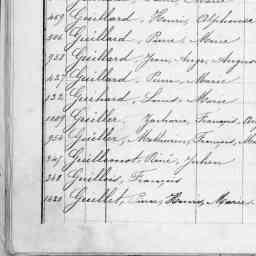 469 Guillard, Henri, Alphonse
806 Guillard, Pierre, Marie
928 Guillard, Jean, Ange, August
427 Guillard, Pierre, Marie
132 Guihard, Louis, Marie
1009 Guiller, Zacharie, François, Aug
956 Guiller, Mathurin, François, Ma
341 Guillemot, René, Julien
268 Guillois, François
1420 Guillet, Pierre, Henri, Marie